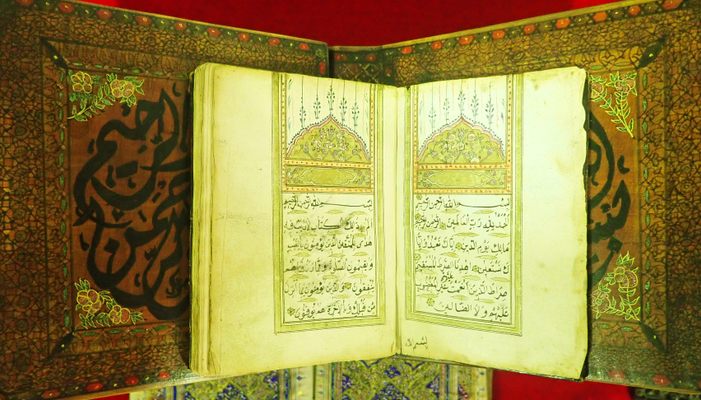 بسم الله الرحمن الرحيم
الحمد لله رب العالمين الرحمن الرحيم
مالك يوم الدين اياك نعبد وايا
ك نستعين اهدنا الصراط المستقيم
صراط الذين انعمت عليهم غير المغضوب
عليهم ولا الضالين
بسم الله الرحمن الرحيم
الم ذلك الكتاب لا ريب فيه
هدى للمتقين الذين يؤمنون بالغيب
ويقيمون الصلوة ومما رزقناهم
ينفقون والذين يؤمنون بما انزل
من قبلك وبالاخرة هم يوقنون